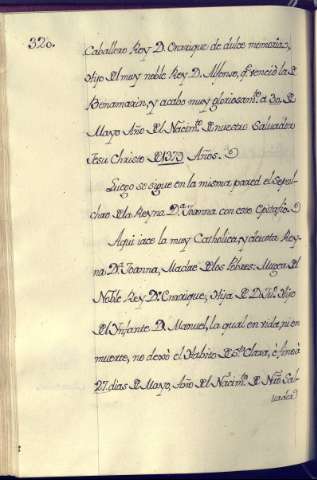 320.
Caballero Rey D. Enrique de dulce memoria,
Hijo del muy noble Rey D. Alfonso, q. venció la de
Benamarin, y acabo muy gloriosam.te a 30. de
Mayo Año del Nacim.to de nuestro Salvador
Jesu Christo de 1379 Años.
Luego se sigue en la misma pared el Sepul-
chro de la Reyna D.a Joanna con este Epitafio.
Aqui iace la muy Catholica, y devota Rey-
na D.a Joanna, Madre de los Pobres: Muger del
Noble Rey D.n Enrrique, Hija de D. Ju.o Hijo
del Ynfante D. Manuel, la qual en vida, ni en
muerte, no dexò el Habito de S.ta Clara, è finò à
27. dias de Mayo, Año del Nacim.to de N.tro Sal-
vador